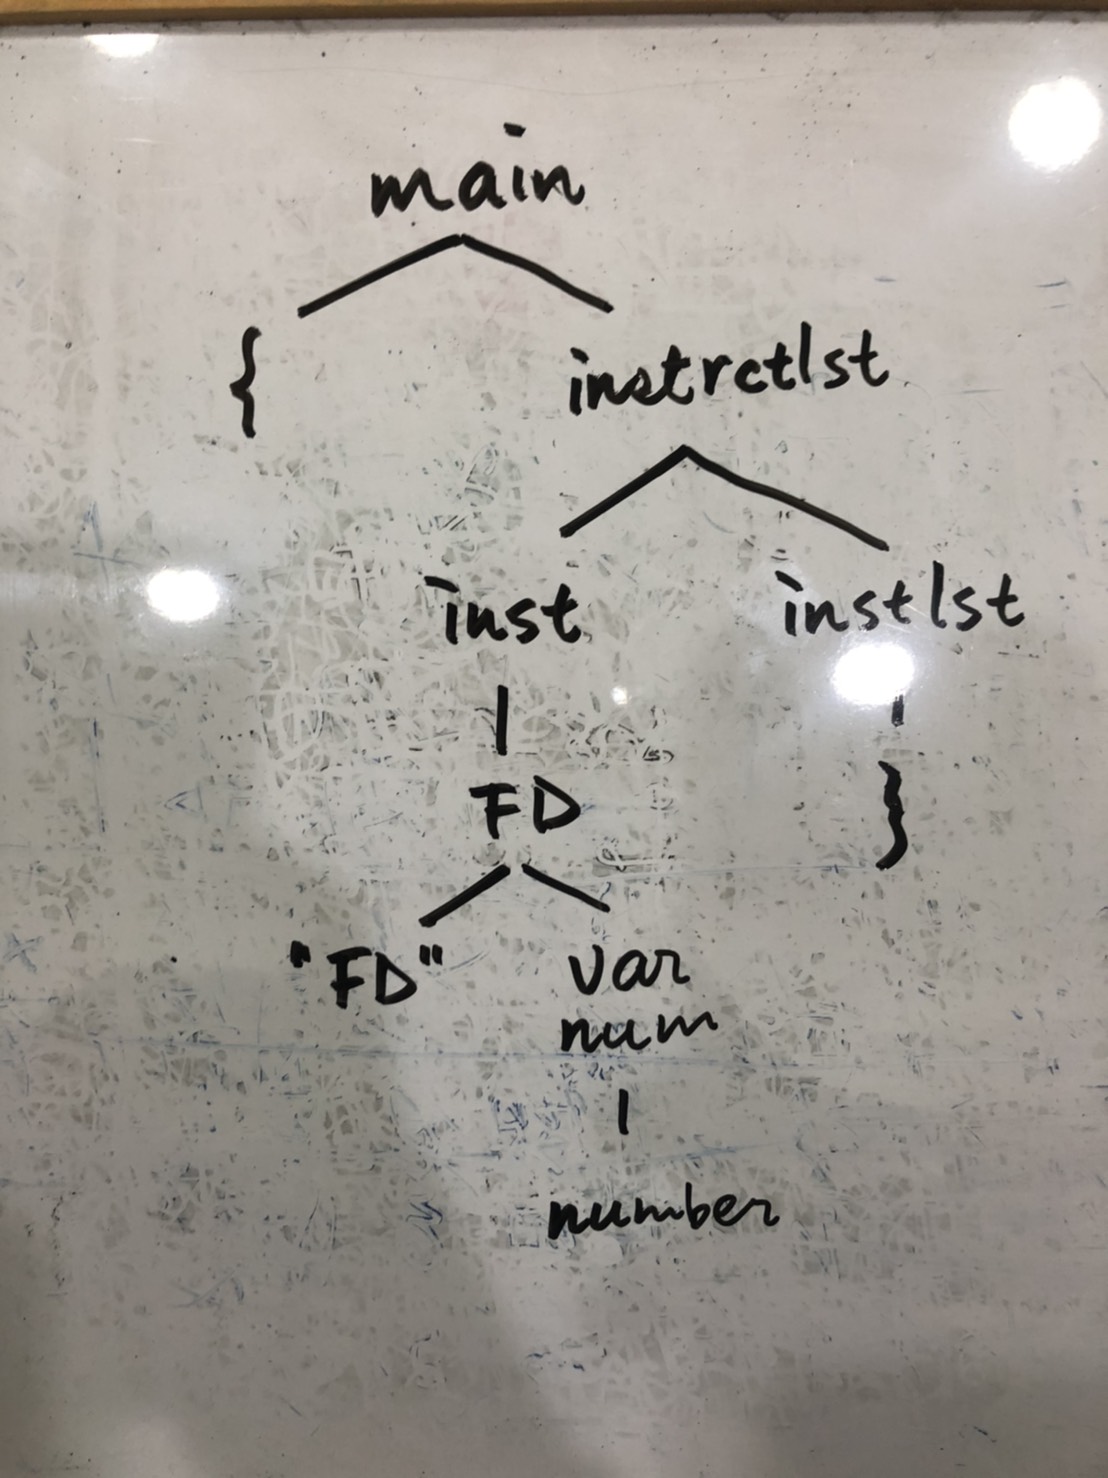 main
{ instrctlst
inst instlst
FD }
"FD" var
num
number